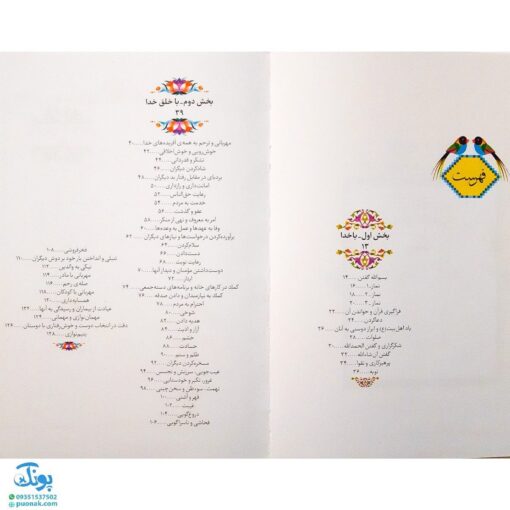 فهرست
بخش اول_باخدا
۱۳
بسم‌الله گفتن.....۱۴
نماز۱.....۱۶
نماز۲.....۱۸
نماز۳.....۲۰
فراگیری قرآن و خواندن آن.....۲۲
دعاکردن.....۲۴
یاد اهل‌بیت(ع) و ابراز دوستی به آنان.....۲۶
صلوات.....۲۸
شکرگزاری و گفتن الحمدلله.....۳۰
گفتن ان‌شاءالله.....۳۲
پرهیزکاری و تقوا.....۳۴
توبه.....۳۶
بخش دوم_با خلق خدا
۳۹
مهربانی و ترحم به همه‌ی آفریده‌های خدا.....۴۰
خوش‌رویی و خوش‌اخلاقی.....۴۲
تشکر و قدردانی.....۴۴
شادکردن دیگران.....۴۶
بردباری در مقابل رفتار بد دیگران.....۴۸
امانت‌داری و رازداری.....۵۰
رعایت حق‌الناس.....۵۲
خدمت به مردم.....۵۴
عفو و گذشت.....۵۶
امر به معروف و نهی از منکر.....۵۸
وفا به عهدها و عمل به وعده‌ها.....۶۰
برآورده‌کردن درخواست‌ها و نیازهای دیگران.....۶۲
سلام‌کردن.....۶۴
دست‌دادن.....۶۶
رعایت نوبت.....۶۸
دوست‌داشتن مؤمنان و دیدار آنها.....۷۰
ایثار.....۷۲
کمک در کارهای خانه و برنامه‌های دسته‌جمعی.....۷۴
کمک به نیازمندان و دادن صدقه.....۷۶
احترام به مردم.....۷۸
شوخی.....۸۰
هدیه دادن.....۸۲
آزار و اذیت.....۸۴
خشم.....۸۶
حسادت.....۸۸
ظلم و ستم.....۹۰
مسخره‌کردن دیگران.....۹۲
عیب‌جویی، سرزنش و تجسس.....۹۴
غرور، تکبر و خودستایی.....۹۶
تهمت، سوءظن و سخن‌چینی.....۹۸
قهر و آشتی.....۱۰۰
غیبت.....۱۰۲
دروغ‌گویی.....۱۰۴
فحاشی و ناسزاگویی.....۱۰۶
فخرفروشی.....۱۰۸
تنبلی و انداختن بار خود بر دوش دیگران.....۱۱۰
نیکی به والدین.....۱۱۲
مهربانی با مادر.....۱۱۴
صله‌ی رحم.....۱۱۶
مهربانی با کودکان.....۱۱۸
همسایه‌داری.....۱۲۰
عیادت از بیماران و رسیدگی به آنها.....۱۲۲
مهمان‌نوازی و مهمانی.....۱۲۴
دقت در انتخاب دوست و خوش‌رفتاری با دوستان.....۱۲۶
یتیم‌نوازی.....۱۲۸
پونک
09351537502
puonak.com